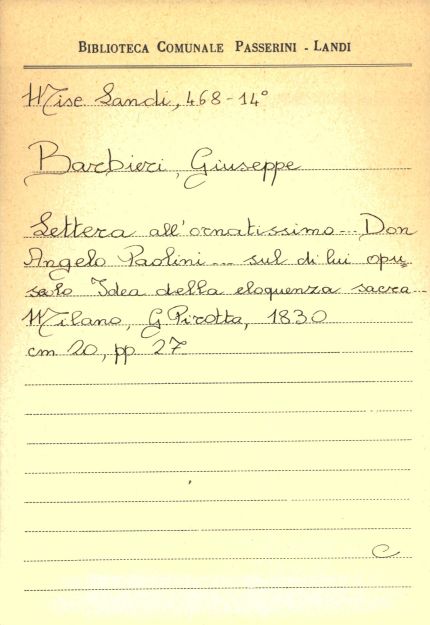 BIBLIOTECA COMUNALE PASSERINI - LANDI
Misc Landi, 468-14°
Barbieri, Giuseppe
Lettera all'ornatissimo... Don
Angelo Paolini... sul di lui opu=
scolo Idea della eloquenza sacra -
Milano, G. Pirotta, 1830
cm 20, pp 27
C